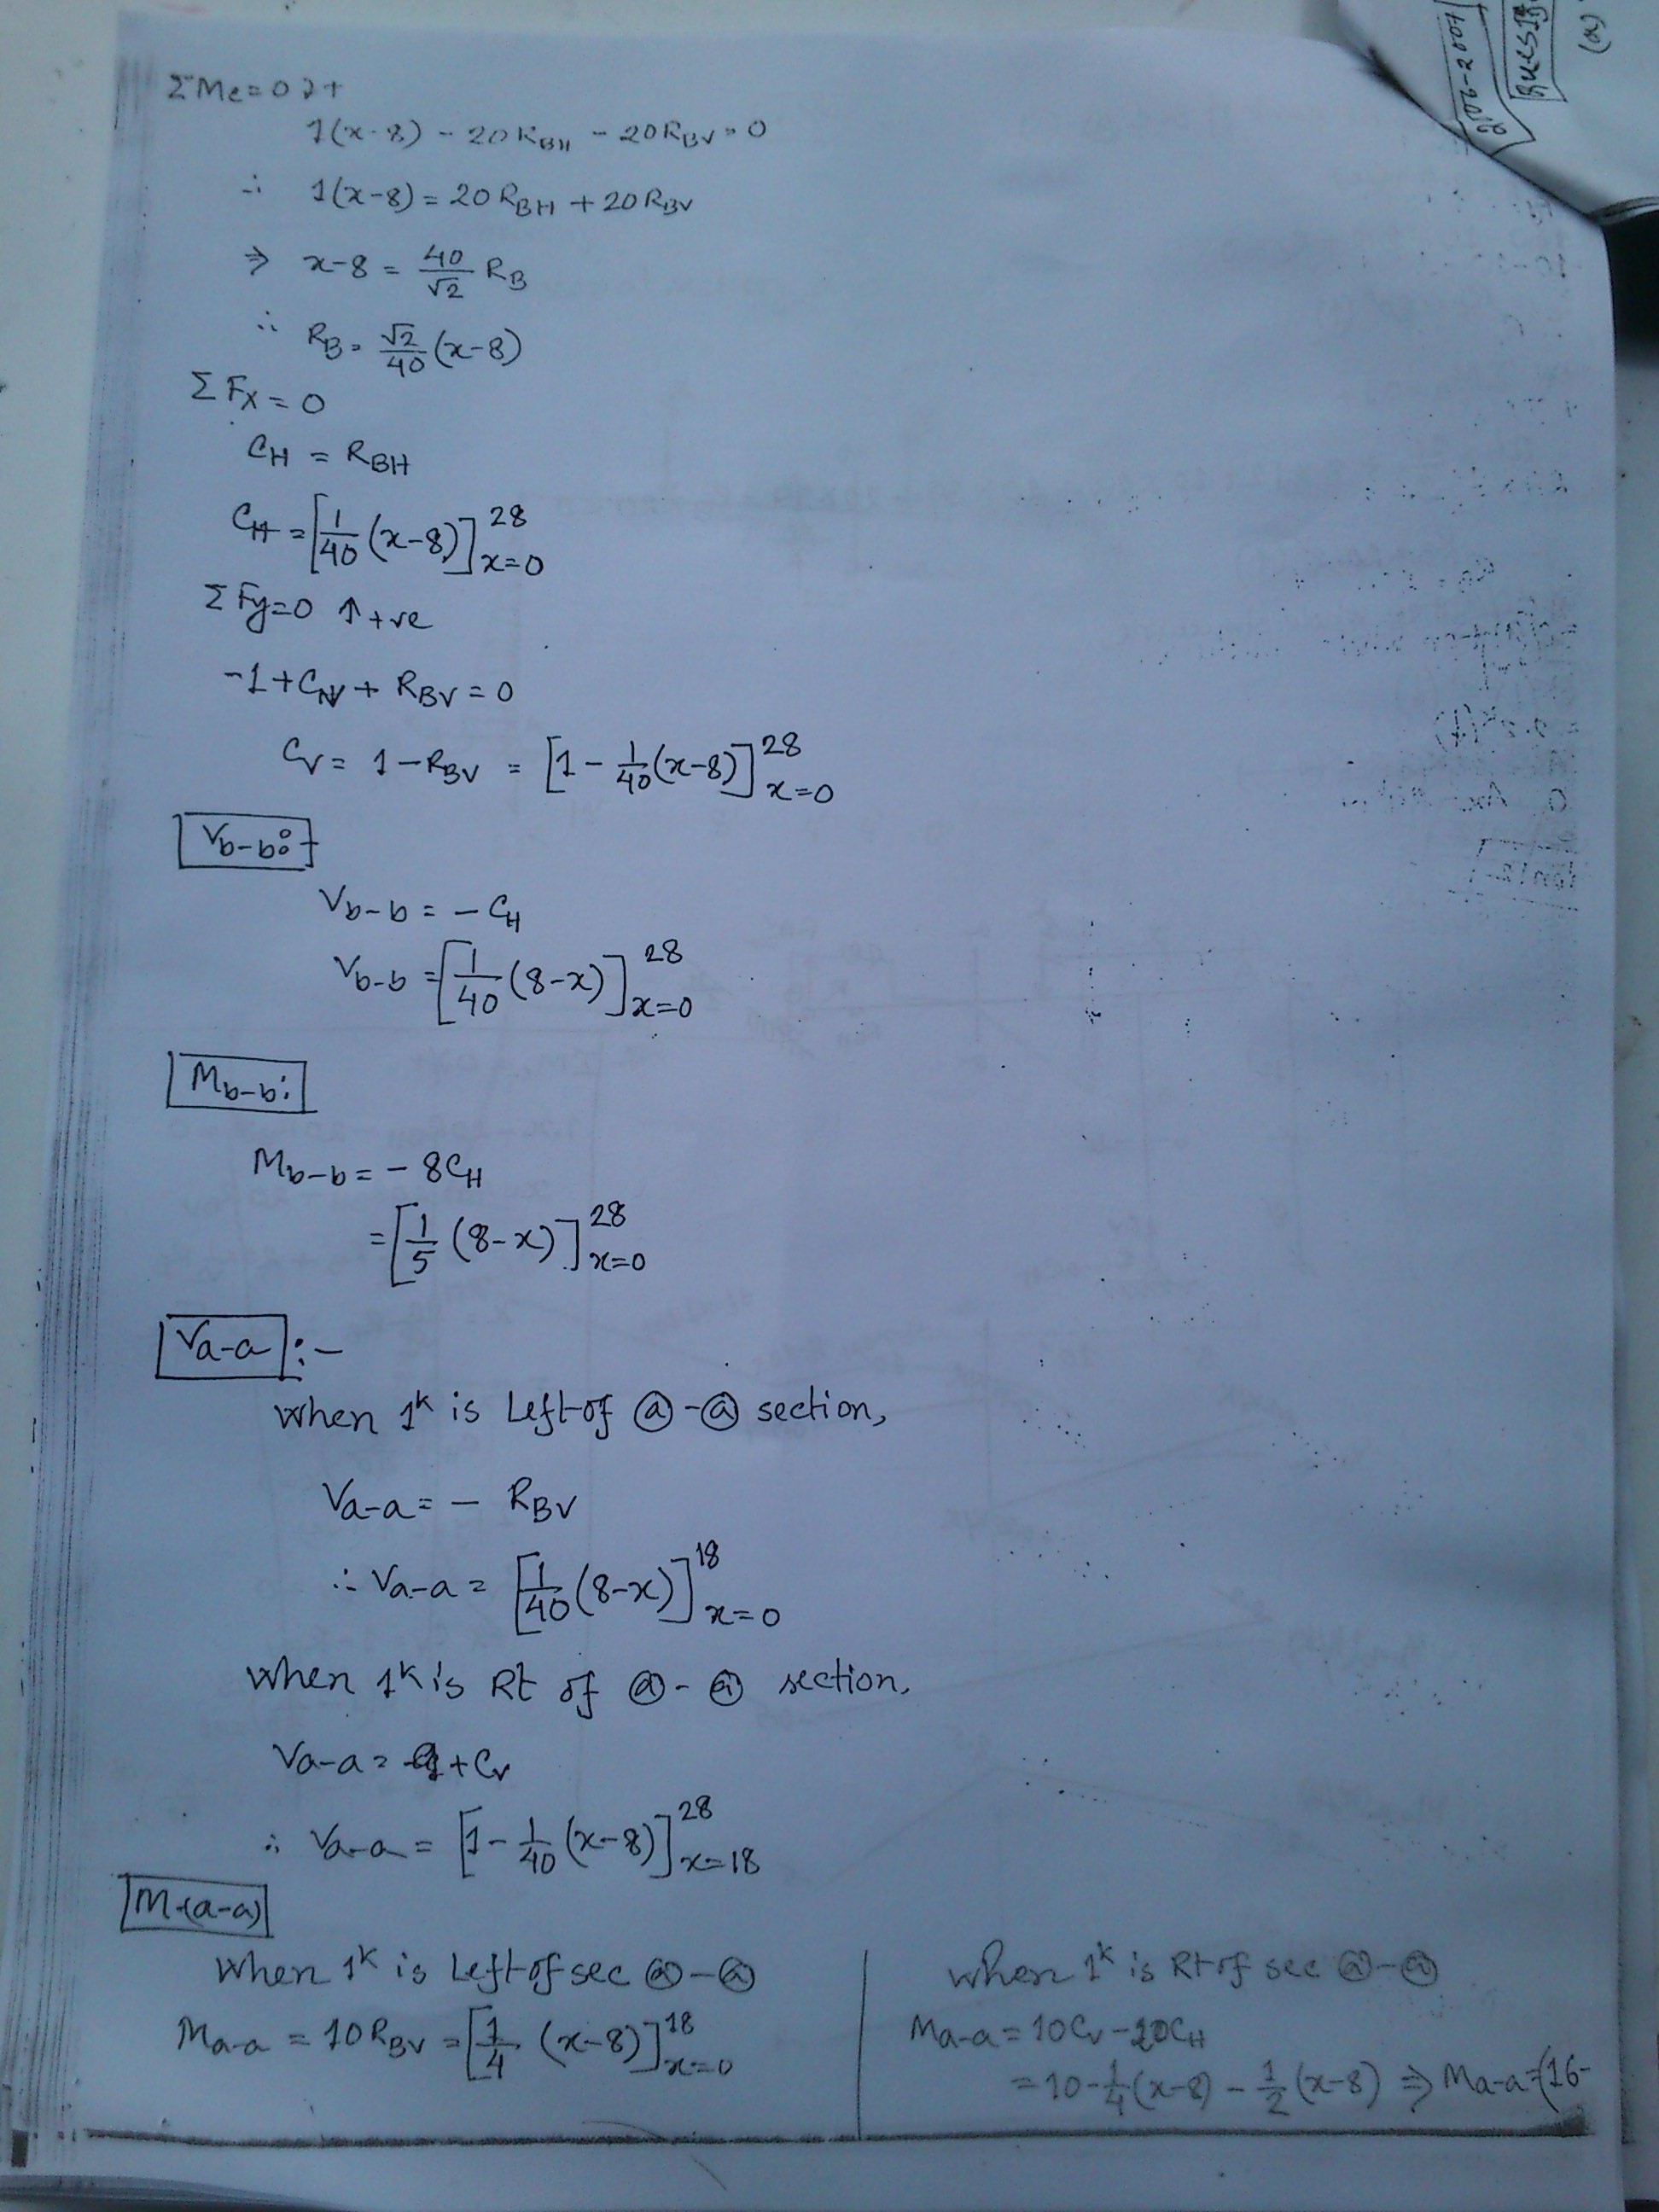 ΣMc = 0 ↻+
1(x-8) - 20R_BH - 20R_BV = 0
∴ 1(x-8) = 20R_BH + 20R_BV
⇒ x-8 = 40/√2 R_B
∴ R_B = √2/40 (x-8)
ΣFx = 0
C_H = R_BH
C_H = [1/40 (x-8)]_{x=0}^{28}
ΣFy=0 ↑+ve
-1 + C_V + R_BV = 0
C_V = 1 - R_BV = [1 - 1/40 (x-8)]_{x=0}^{28}
V_b-b :-
V_b-b = - C_H
V_b-b = [1/40 (8-x)]_{x=0}^{28}
M_b-b :
M_b-b = - 8C_H
= [1/5 (8-x)]_{x=0}^{28}
V_a-a :-
When 1^k is Left of ⓐ-ⓐ section,
V_a-a = - R_BV
∴ V_a-a = [1/40 (8-x)]_{x=0}^{18}
When 1^k is Rt of ⓐ-ⓐ section,
V_a-a = + C_V
∴ V_a-a = [1 - 1/40 (x-8)]_{x=18}^{28}
M(a-a)
When 1^k is Left of sec ⓐ-ⓐ
M_a-a = 10R_BV = [1/4 (x-8)]_{x=0}^{18}
When 1^k is Rt of sec ⓐ-ⓐ
M_a-a = 10C_V - 20C_H
= 10 - 1/4 (x-8) - 1/2 (x-8) ⇒ M_a-a = (16-
2006-2007
(a)